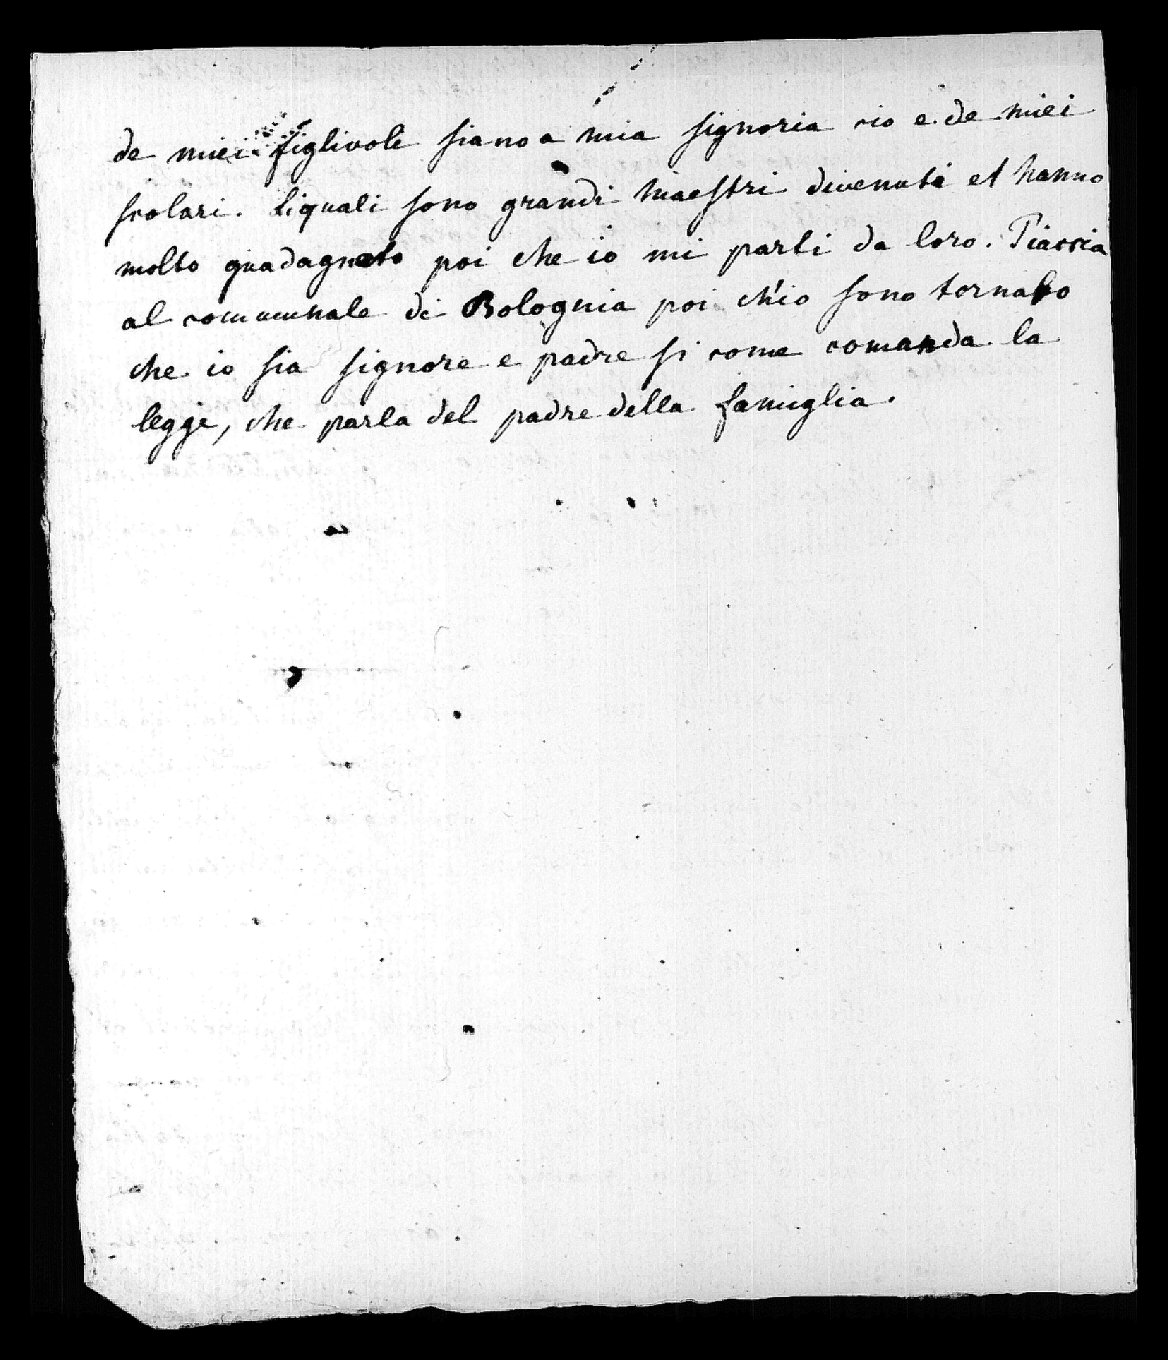 de miei figlivole siano a mia signoria cio e de miei
scolari. liquali sono grandi maestri divenuti et hanno
molto guadagnato poi che io mi parti da loro. Piaccia
al comumnale di Bolognia poi ch'io sono tornato
che io sia signore e padre si come comanda la
legge, che parla del padre della famiglia.